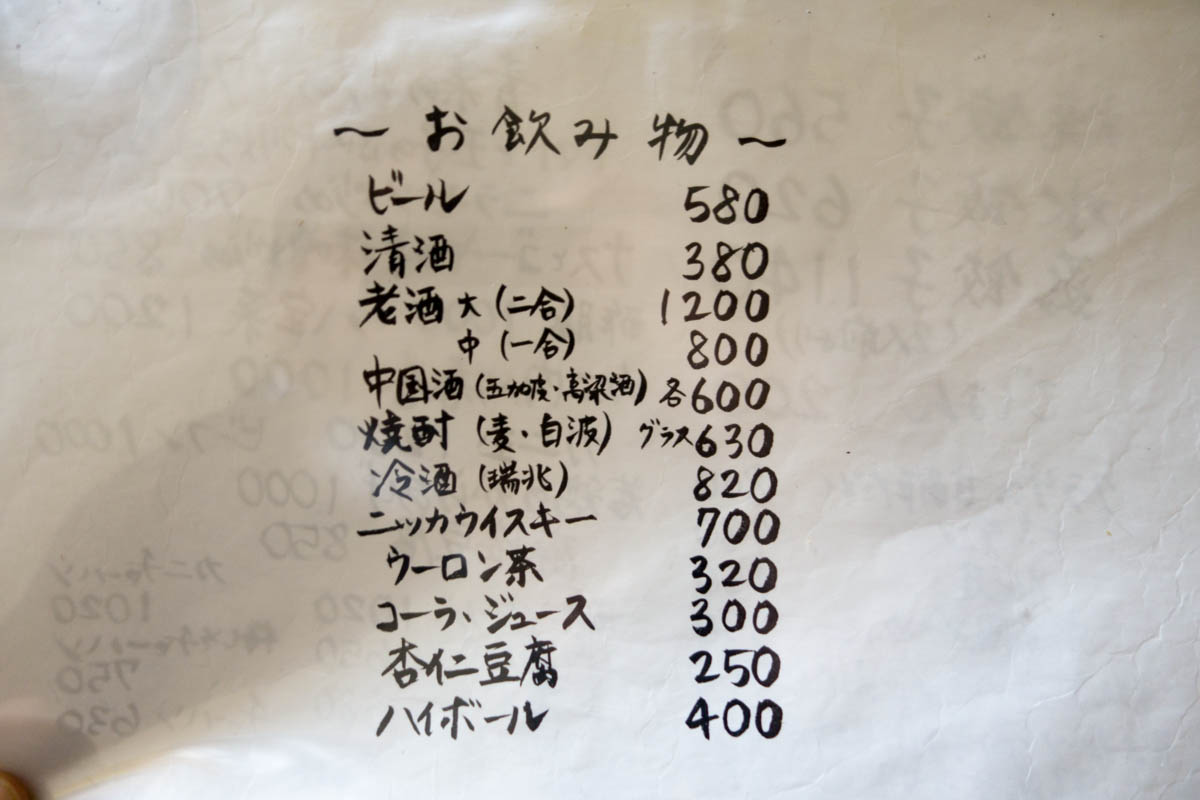 ～お飲み物～
ビール 580
清酒 380
老酒 大(二合) 1200
中(一合) 800
中国酒(五加皮・高梁酒) 各600
焼酎(麦・白波) グラス630
冷酒(瑞兆) 820
ニッカウイスキー 700
ウーロン茶 320
コーラ・ジュース 300
杏仁豆腐 250
ハイボール 400